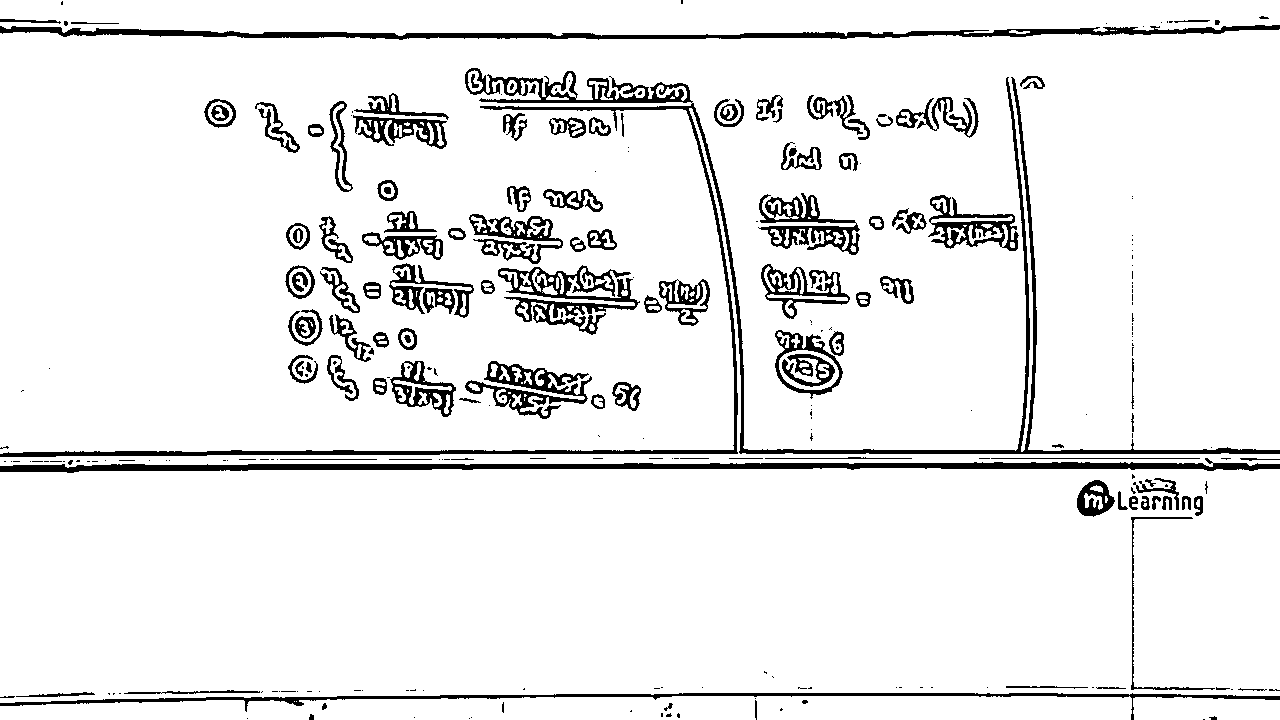 Binomial Theorem
② ⁿCᵣ = { n! / r!(n-r)! if n ≥ r
0 if n < r
① ⁷C₂ = 7! / 2! × 5! = 7×6×5! / 2×5! = 21
② ⁿC₂ = n! / 2!(n-2)! = n×(n-1)×(n-2)! / 2×(n-2)! = n(n-1) / 2
③ ¹²C₁₇ = 0
④ ⁸C₃ = 8! / 3!×5! = 8×7×6×5! / 6×5! = 56
If (n+1)C₃ = 2×(ⁿC₂)
find n
(n+1)! / 3!×(n-2)! = 2× n! / 2!×(n-2)!
(n+1) n! / 6 = n!
n+1 = 6
n=5
m Learning